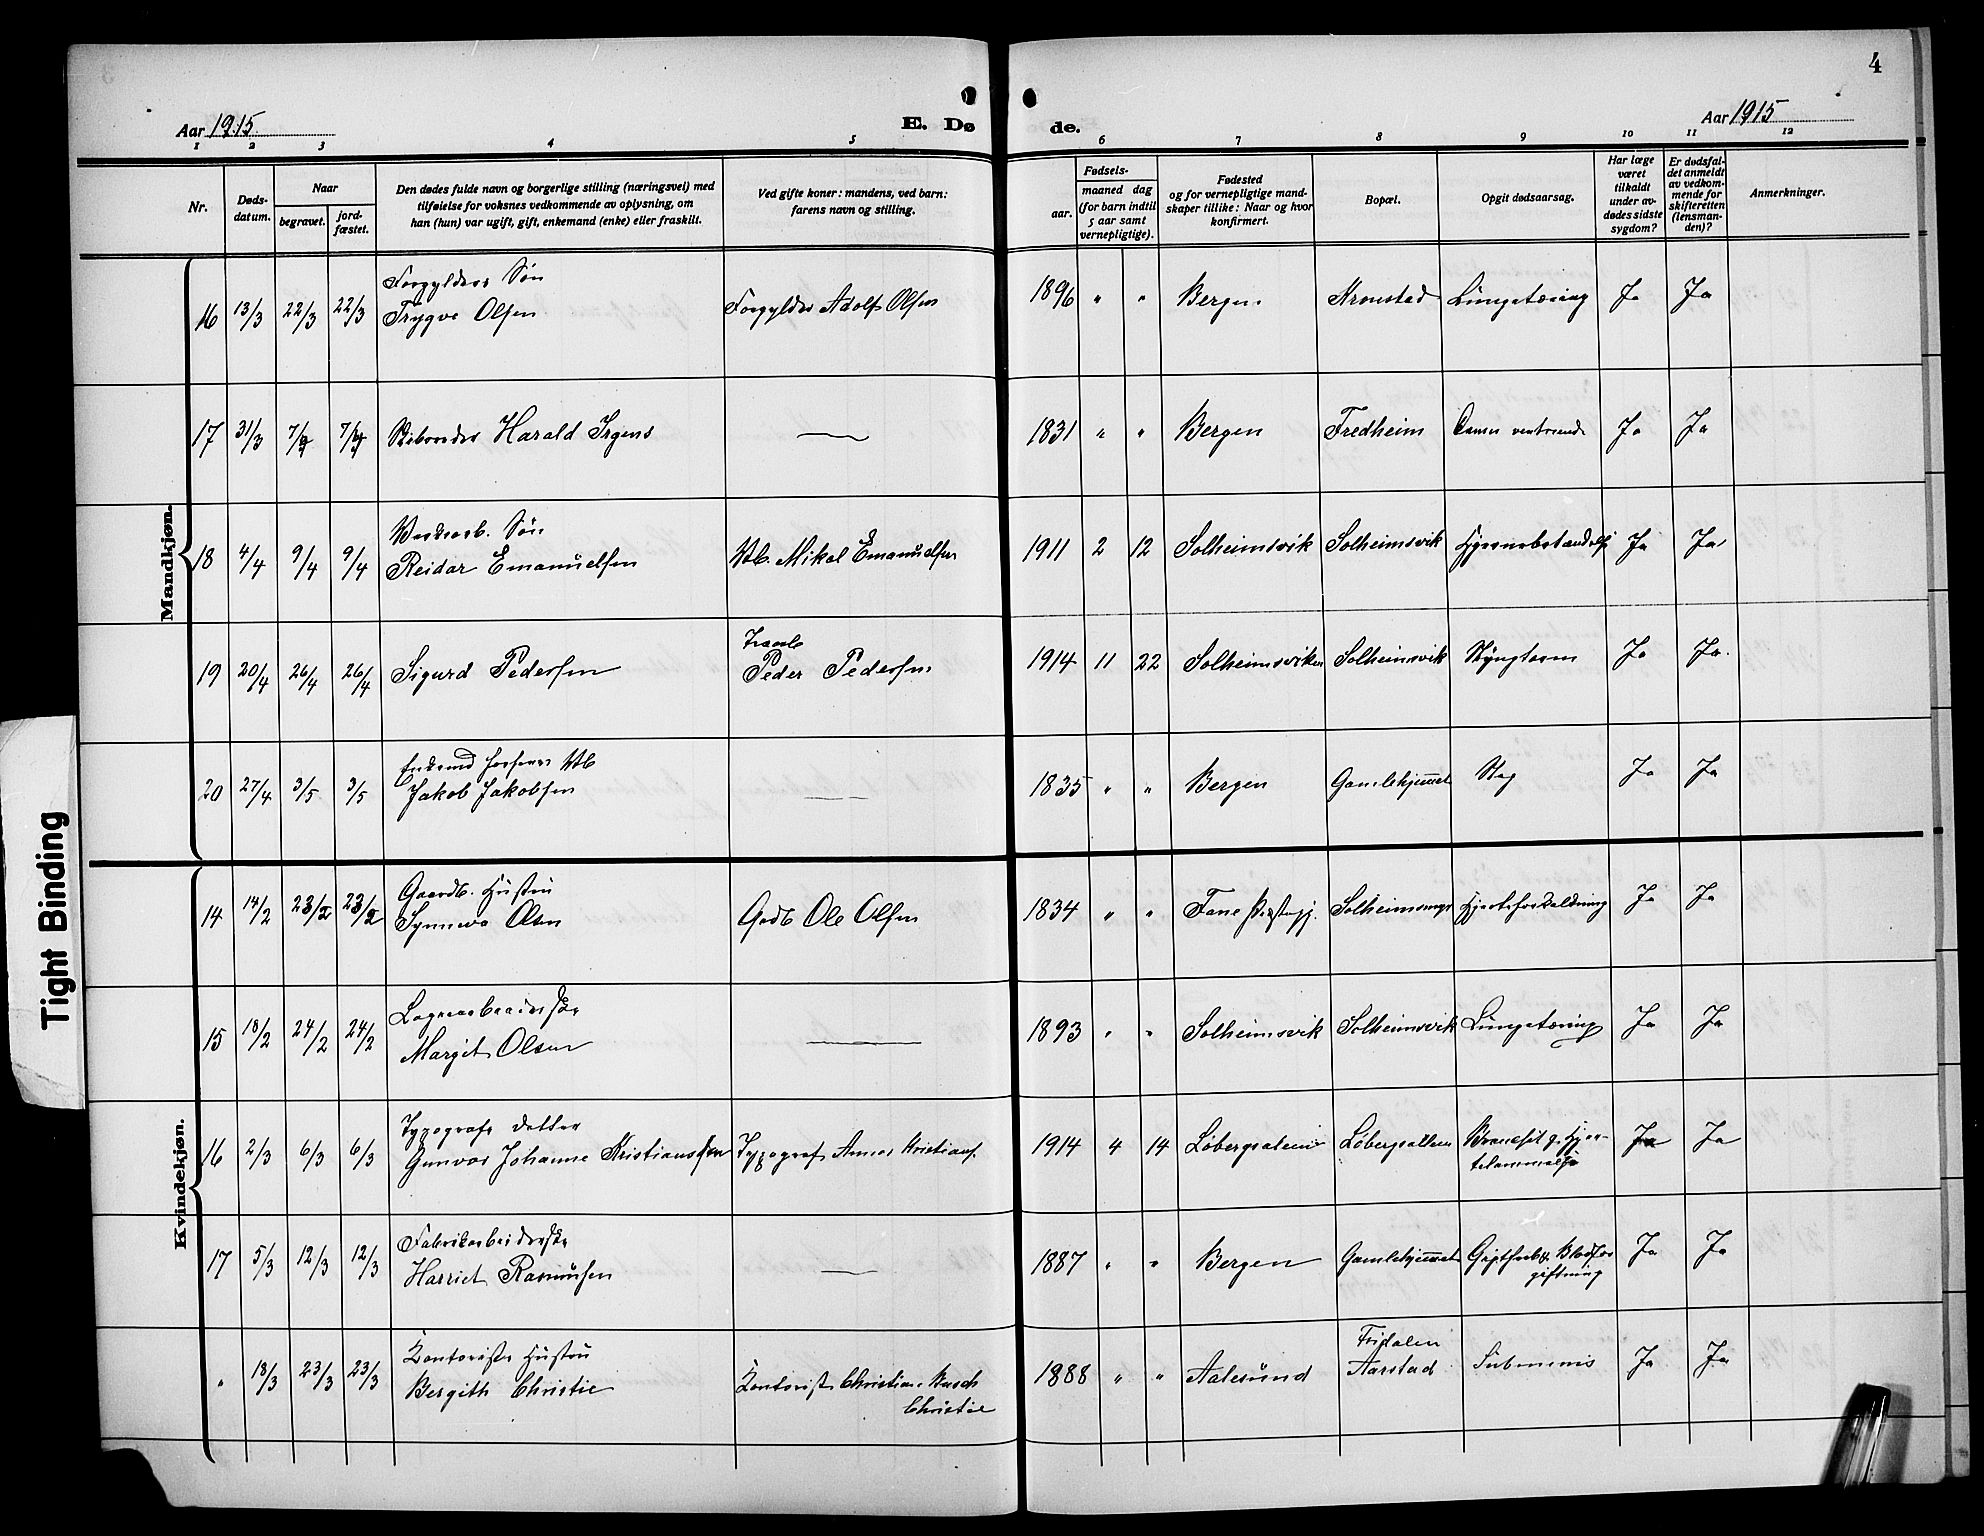 4
Aar 1915.
E. Dø
de.
Aar 1915
1 2 3 4 5 6 7 8 9 10 11 12
Nr.
Døds-
datum.
Naar
begravet.
jord-
fæstet.
Den dødes fulde navn og borgerlige stilling (næringsvei) med
tilføielse for voksnes vedkommende av oplysning, om
han (hun) var ugift, gift, enkemand (enke) eller fraskilt.
Ved gifte koner: mandens, ved barn:
farens navn og stilling.
Fødsels-
aar.
maaned dag
(for barn indtil
5 aar samt
vernepligtige).
Fødested
og for vernepligtige mand-
skaper tillike: Naar og hvor
konfirmert.
Bopæl.
Opgit dødsaarsag.
Har læge
været
tilkaldt
under av-
dødes sidste
sygdom?
Er dødsfal-
det anmeldt
av vedkom-
mende for
skifteretten
(lensman-
den)?
Anmerkninger.
Mandkjøn.
Forgylders Søn
16 13/3 22/3 22/3 Trygve Olsen Forgylder Adolf Olsen 1896 " " Bergen Kronstad Lungetæring Ja Ja
17 31/3 7/4 7/4 Harald Irgens — 1831 " " Bergen Fredheim Cancer ventriculi Ja Ja
Verksarb. Søn
18 4/4 9/4 9/4 Reidar Emanuelsen Vb. Mikal Emanuelsen 1911 2 12 Solheimsvik Solheimsvik Ja Ja
19 20/4 26/4 26/4 Sigurd Pedersen Peder Pedersen 1914 11 22 Solheimsviken Solheimsvik Ja Ja.
Enkemand forhenv. Vb
20 27/4 3/5 3/5 Jakob Jakobsen — 1835 " " Bergen Gamlehjemmet Slag Ja Ja
Kvindekjøn.
Gaardb. Hustru
14 14/2 23/2 23/2 Synneva Olsen Grdb Ole Olsen 1834 " " Fane Solheimsmyr Hjerteforkalkning Ja Ja
Lagerarbeiderske
15 18/2 24/2 24/2 Margit Olsen — 1893 " " Solheimsvik Solheimsvik Lungetæring Ja Ja
Typografs datter
16 2/3 6/3 6/3 Gunvor Johanne Kristiansen Typograf Kristians. 1914 4 14 Løbergsaleen Løbergsalleen Bronchit g. Hjer-
telammelse Ja Ja
Fabrikarbeiderske
17 5/3 12/3 12/3 Harriet Rasmussen — 1887 " " Bergen Gamlehjemmet Blodfor
giftning Ja Ja
Kontorists Hustru
" 18/3 23/3 23/3 Bergith Christie Kontorist Christian Busch
Christie 1888 " " Aalesund Fridalen
Aarstad Ja Ja
Tight Binding